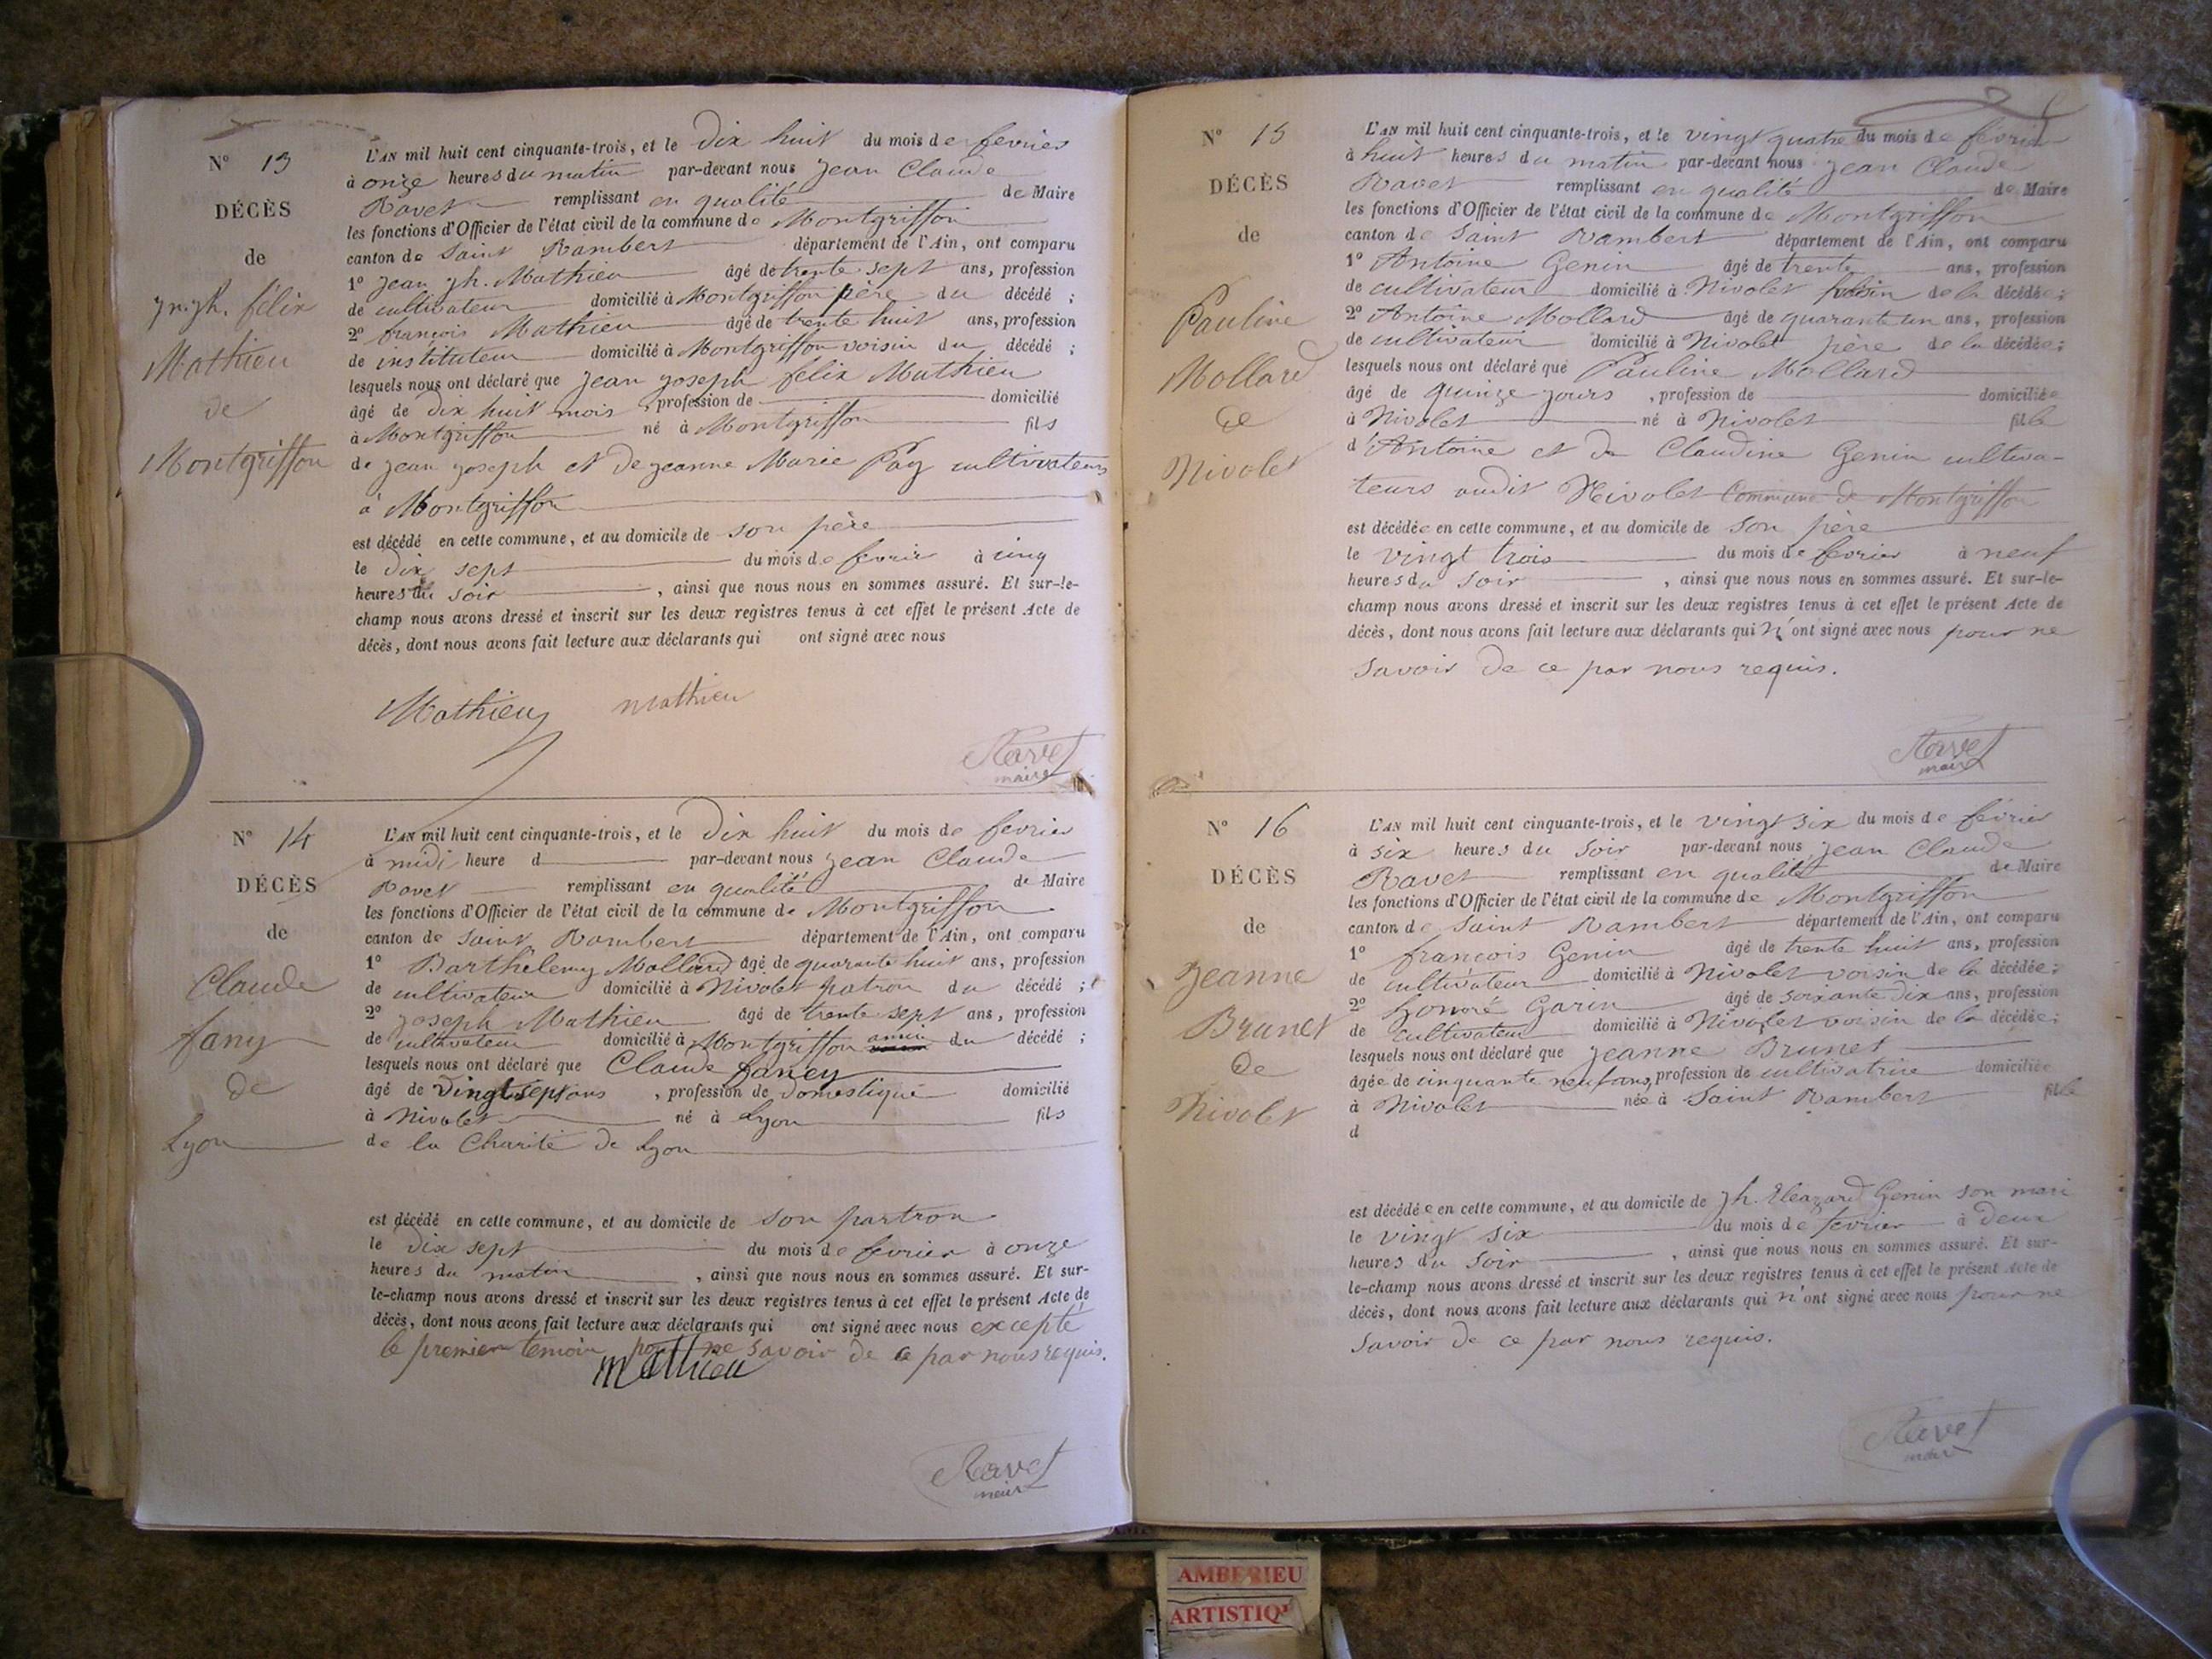 N° 13
DÉCÈS
de
Jn. Jh. félix
Mathieu
de
Montgriffon
L'AN mil huit cent cinquante-trois, et le Dix huit du mois de fevrier
à onze heures du matin par-devant nous Jean Claude
Ravet remplissant en qualité de Maire
les fonctions d'Officier de l'état civil de la commune de Montgriffon
canton de Saint Rambert département de l'Ain, ont comparu
1° Jean Jh. Mathieu âgé de trente sept ans, profession
de cultivateur domicilié à Montgriffon père du décédé ;
2° françois Mathieu âgé de trente huit ans, profession
de instituteur domicilié à Montgriffon voisin du décédé ;
lesquels nous ont déclaré que Jean Joseph felix Mathieu
âgé de dix huit mois , profession de domicilié
à Montgriffon né à Montgriffon fils
de Jean Joseph et de Jeanne Marie Pay cultivateurs
à Montgriffon
est décédé en cette commune, et au domicile de son père
le Dix sept du mois de fevrier à cinq
heures du soir , ainsi que nous nous en sommes assuré. Et sur-le-
champ nous avons dressé et inscrit sur les deux registres tenus à cet effet le présent Acte de
décès, dont nous avons fait lecture aux déclarants qui ont signé avec nous
Mathieu mathieu
Ravet
maire
N° 14
DÉCÈS
de
Claude
fany
de
Lyon
L'AN mil huit cent cinquante-trois, et le Dix huit du mois de fevrier
à midi heure d par-devant nous Jean Claude
Ravet remplissant en qualité de Maire
les fonctions d'Officier de l'état civil de la commune de Montgriffon
canton de Saint Rambert département de l'Ain, ont comparu
1° Barthelemy Mollard âgé de quarante huit ans, profession
de cultivateur domicilié à Nivolet patron du décédé ;
2° Joseph Mathieu âgé de trente sept ans, profession
de cultivateur domicilié à Montgriffon du décédé ;
lesquels nous ont déclaré que Claude fancy
âgé de vingt sept ans , profession de domestique domicilié
à Nivolet né à Lyon fils
de la Charité de Lyon
est décédé en cette commune, et au domicile de son partron
le dix sept du mois de fevrier à onze
heures du matin , ainsi que nous nous en sommes assuré. Et sur-
le-champ nous avons dressé et inscrit sur les deux registres tenus à cet effet le présent Acte de
décès, dont nous avons fait lecture aux déclarants qui ont signé avec nous excepté
le premier temoin pour ne savoir de ce par nous requis.
mathieu
Ravet
maire
N° 15
DÉCÈS
de
Pauline
Mollard
de
Nivolet
L'AN mil huit cent cinquante-trois, et le vingt quatre du mois de fevrier
à huit heures du matin par-devant nous Jean Claude
Ravet remplissant en qualité de Maire
les fonctions d'Officier de l'état civil de la commune de Montgriffon
canton de Saint Rambert département de l'Ain, ont comparu
1° Antoine Genin âgé de trente ans, profession
de cultivateur domicilié à Nivolet voisin de la décédée ;
2° Antoine Mollard âgé de quarante un ans, profession
de cultivateur domicilié à Nivolet père de la décédée ;
lesquels nous ont déclaré que Pauline Mollard
âgé de quinze jours , profession de domiciliée
à Nivolet né à Nivolet fille
d'Antoine et de Claudine Genin cultiva-
teurs audit Nivolet Commune de Montgriffon
est décédée en cette commune, et au domicile de son père
le vingt trois du mois de fevrier à neuf
heures du soir , ainsi que nous nous en sommes assuré. Et sur-le-
champ nous avons dressé et inscrit sur les deux registres tenus à cet effet le présent Acte de
décès, dont nous avons fait lecture aux déclarants qui n'ont signé avec nous pour ne
savoir de ce par nous requis.
Ravet
maire
N° 16
DÉCÈS
de
Jeanne
Brunet
de
Nivolet
L'AN mil huit cent cinquante-trois, et le vingt six du mois de février
à six heures du soir par-devant nous Jean Claude
Ravet remplissant en qualité de Maire
les fonctions d'Officier de l'état civil de la commune de Montgriffon
canton de Saint Rambert département de l'Ain, ont comparu
1° françois Genin âgé de trente huit ans, profession
de cultivateur domicilié à Nivolet voisin de la décédée ;
2° honoré Garin âgé de soixante dix ans, profession
de cultivateur domicilié à Nivolet voisin de la décédée ;
lesquels nous ont déclaré que Jeanne Brunet
âgée de cinquante neuf ans, profession de cultivatrice domiciliée
à Nivolet née à Saint Rambert fille
d
est décédée en cette commune, et au domicile de Jh. Eleazard Genin son mari
le vingt six du mois de fevrier à deux
heures du soir , ainsi que nous nous en sommes assuré. Et sur-
le-champ nous avons dressé et inscrit sur les deux registres tenus à cet effet le présent Acte de
décès, dont nous avons fait lecture aux déclarants qui n'ont signé avec nous pour ne
savoir de ce par nous requis.
Ravet
maire
AMBERIEU
ARTISTIQ